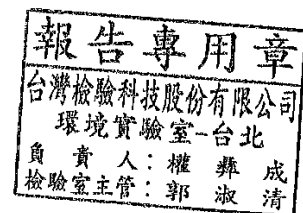 報告專用章
台灣檢驗科技股份有限公司
環境實驗室-台北
負責人:權彝成
檢驗室主管:郭淑清